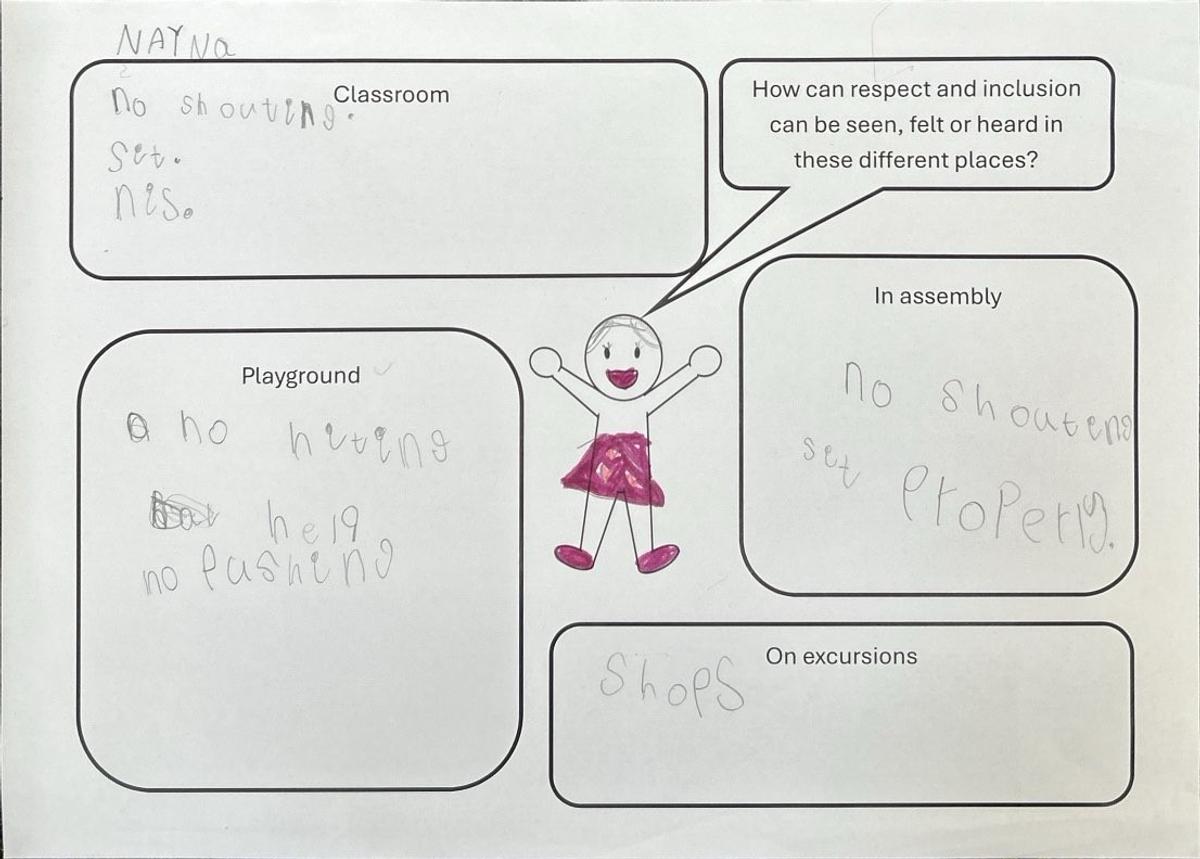 NAYNa
Classroom
no shouting.
set.
nis.
How can respect and inclusion
can be seen, felt or heard in
these different places?
In assembly
no shouteng
set Properly.
Playground
no hiting
help
no Pushing
On excursions
ShoPS